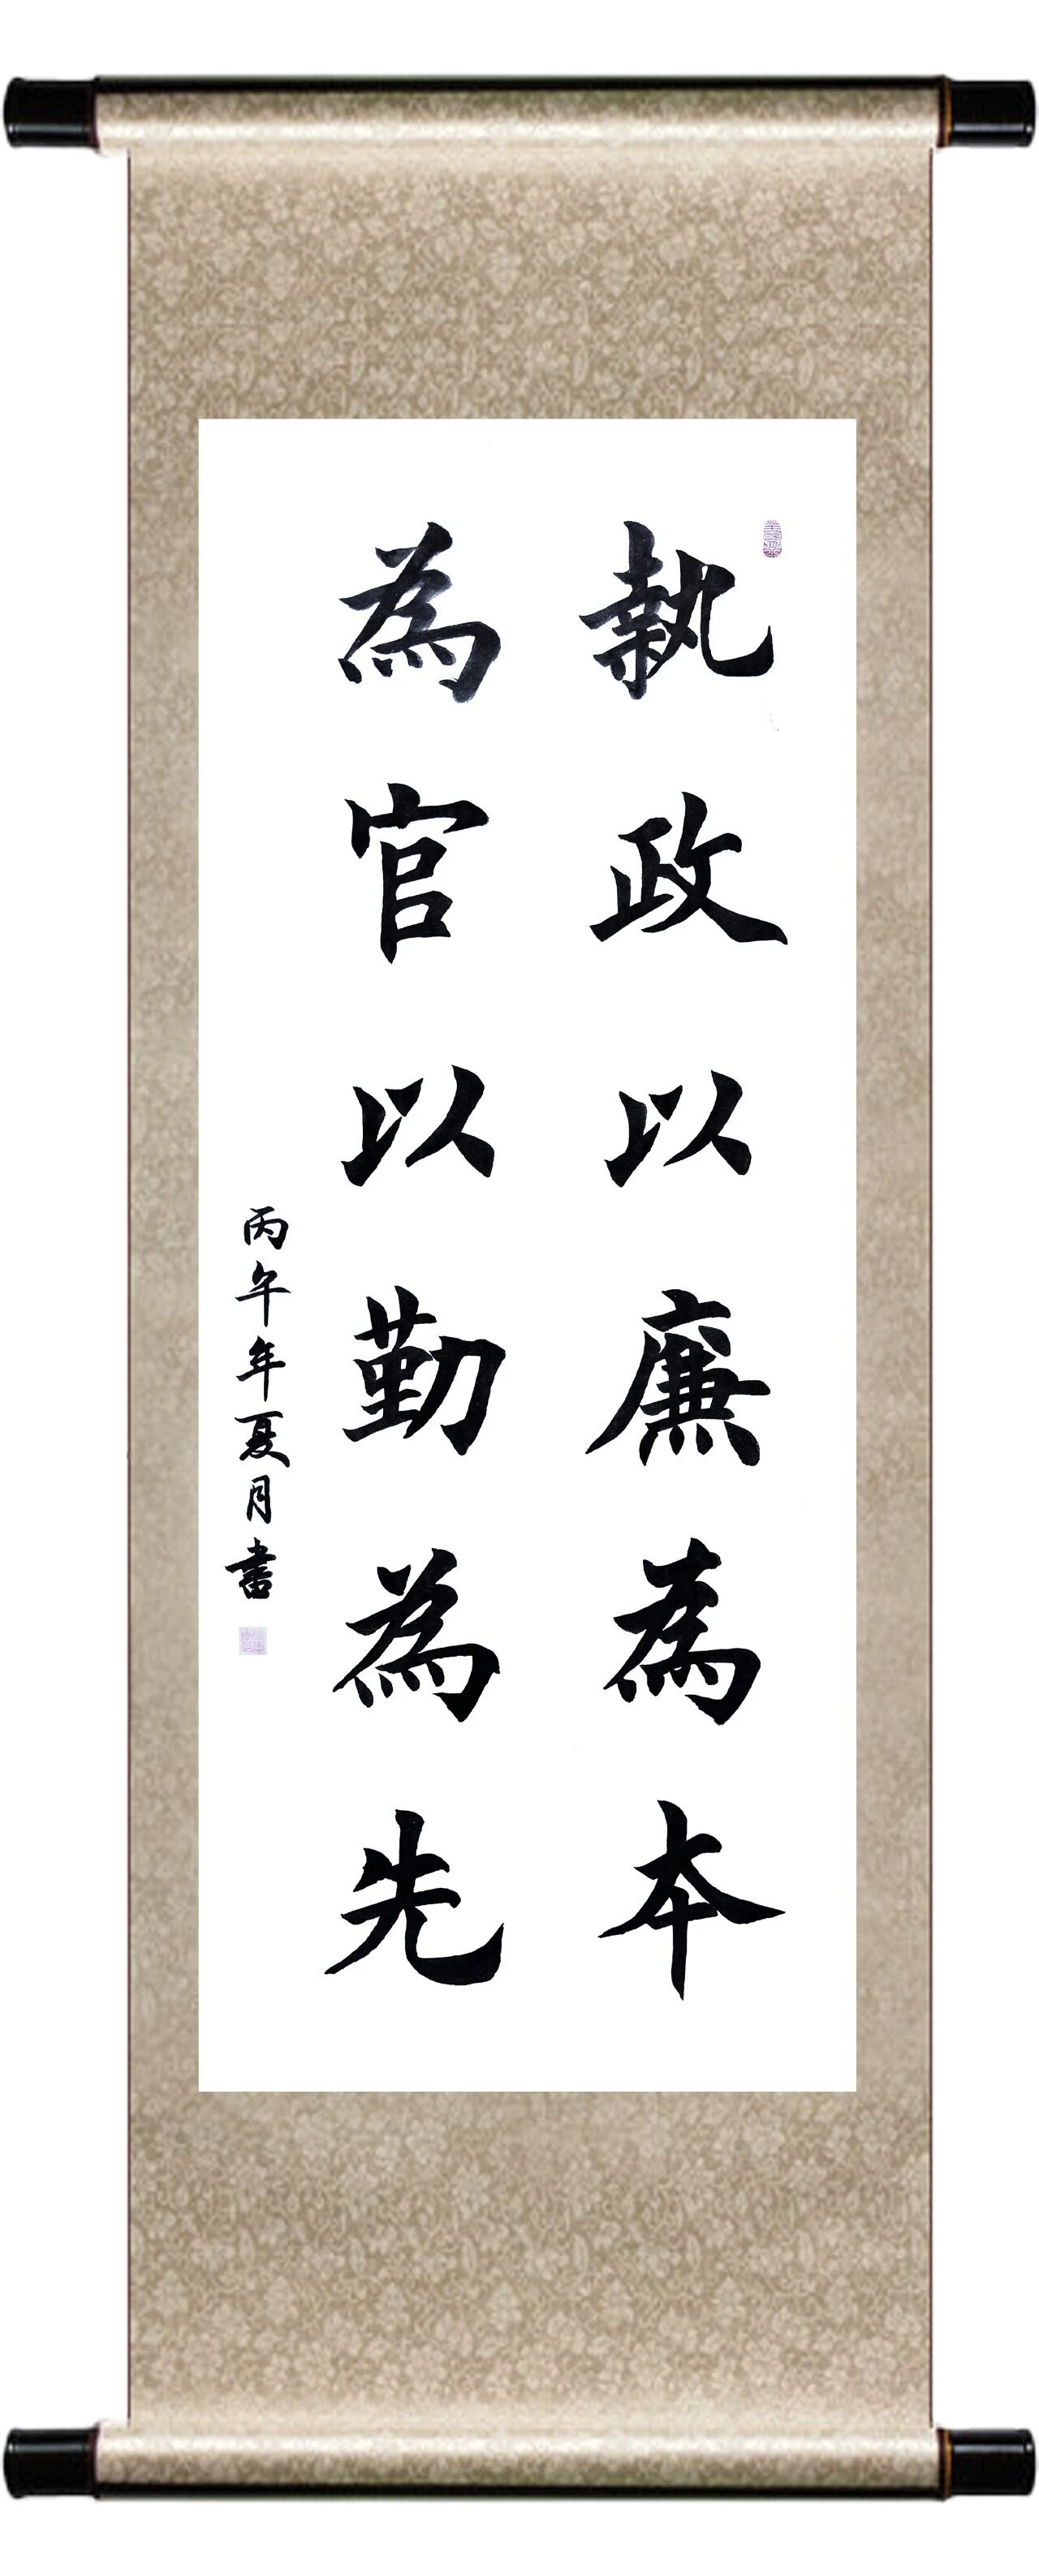 執政以廉為本
為官以勤為先
丙午年夏月書